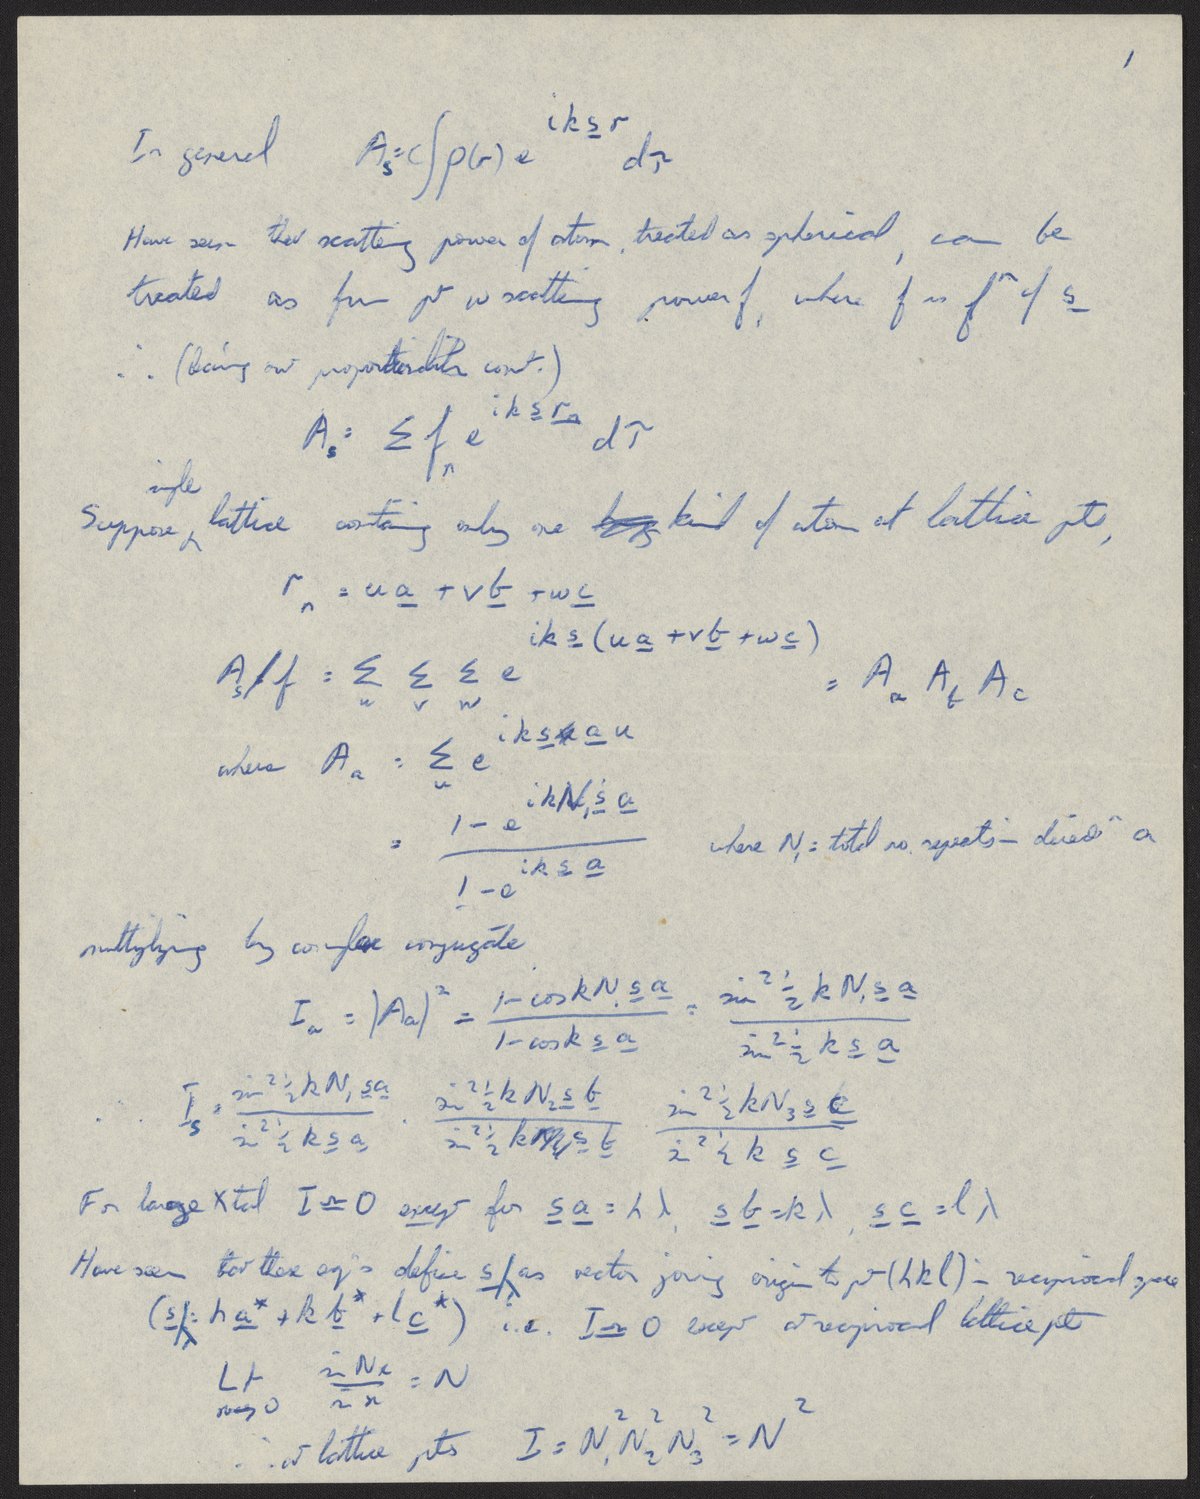 1
In general A_s = C ∫ ρ(r) e^{ik s̲ r} dτ
Have seen that scattering power of atom, treated as spherical, can be
treated as from pt w scattering power f, where f is fⁿ of s̲
∴ (leaving out proportionality const.)
A_s = Σ f_n e^{ik s̲ r̲_n} dτ
simple
Suppose ‸ lattice containing only one kind of atom at lattice pts,
r_n = u a̲ + v b̲ + w c̲
A_s/f = Σ_u Σ_v Σ_w e^{ik s̲ (u a̲ + v b̲ + w c̲)} = A_a A_b A_c
where A_a = Σ_u e^{ik s̲ a̲ u}
= (1 - e^{ik N₁ s̲ a̲}) / (1 - e^{ik s̲ a̲}) where N₁ = total no. repeats in directⁿ a
multiplying by complex conjugate
I_a = |A_a|² = (1 - cos k N₁ s̲ a̲) / (1 - cos k s̲ a̲) = (sin² ½ k N₁ s̲ a̲) / (sin² ½ k s̲ a̲)
∴ I_s = (sin² ½ k N₁ s̲ a̲) / (sin² ½ k s̲ a̲) · (sin² ½ k N₂ s̲ b̲) / (sin² ½ k s̲ b̲) (sin² ½ k N₃ s̲ c̲) / (sin² ½ k s̲ c̲)
For large Xtal I ≃ 0 except for s̲ a̲ = hλ, s̲ b̲ = kλ, s̲ c̲ = lλ
Have seen that these eqⁿs define s̲/λ as vector joining origin to pt (hkl) in reciprocal space
(s̲/λ = h a̲* + k b̲* + l c̲*) i.e. I ≃ 0 except at reciprocal lattice pts
Lt x→0 (sin Nx) / (sin x) = N
∴ at lattice pts I = N₁² N₂² N₃² = N²